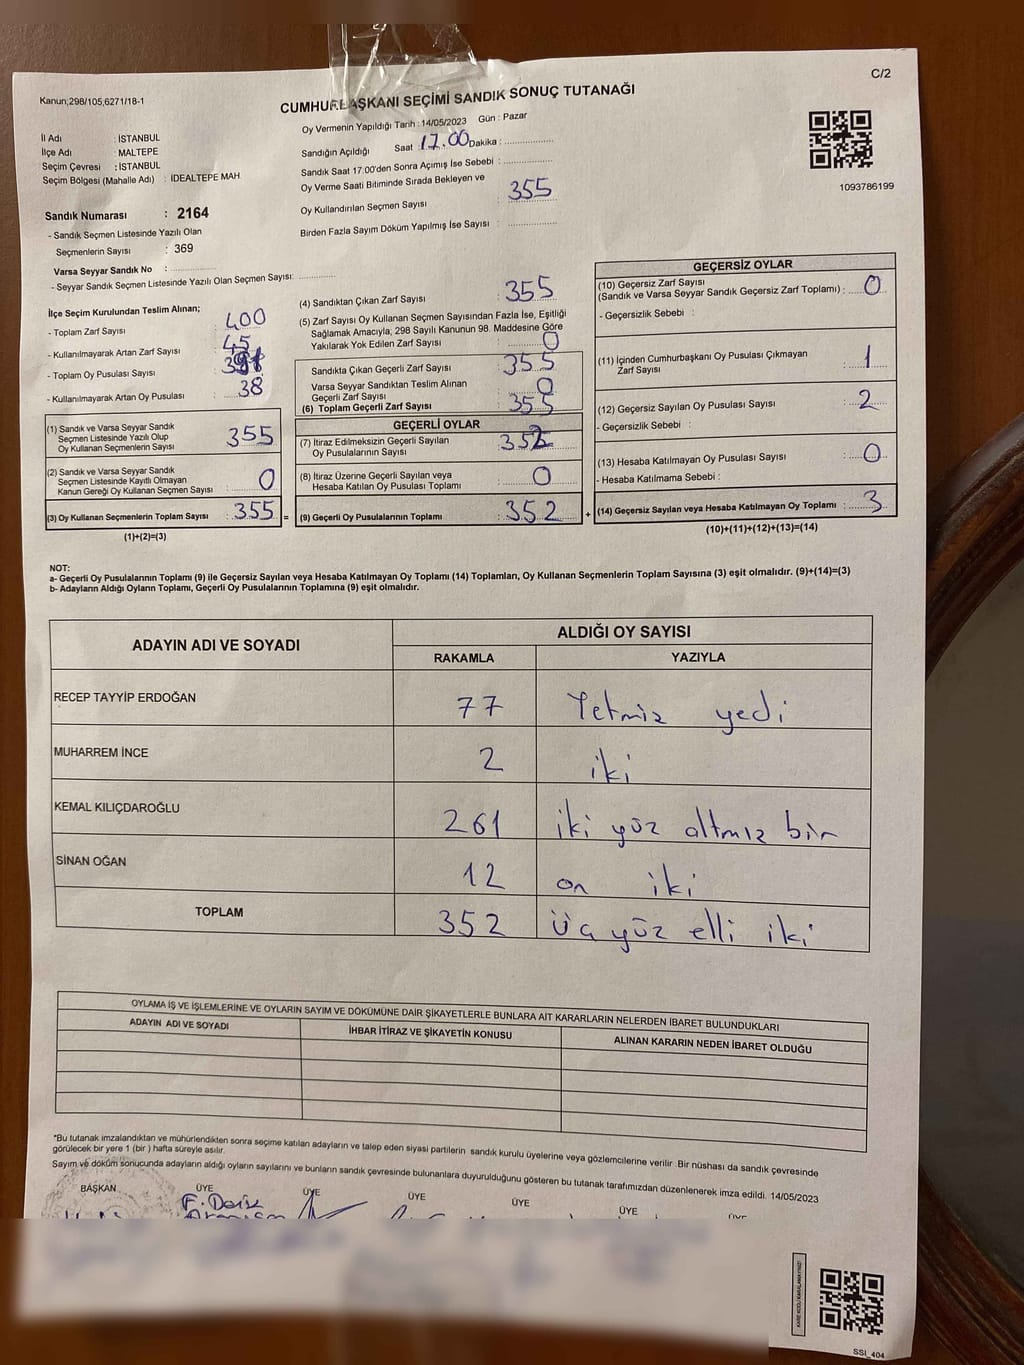 C/2
Kanun;298/105,6271/18-1
CUMHURBAŞKANI SEÇİMİ SANDIK SONUÇ TUTANAĞI
Oy Vermenin Yapıldığı Tarih : 14/05/2023 Gün : Pazar
İl Adı : İSTANBUL
İlçe Adı : MALTEPE
Seçim Çevresi : İSTANBUL
Seçim Bölgesi (Mahalle Adı) : İDEALTEPE MAH
Sandık Numarası : 2164
- Sandık Seçmen Listesinde Yazılı Olan
Seçmenlerin Sayısı : 369
Varsa Seyyar Sandık No :
- Seyyar Sandık Seçmen Listesinde Yazılı Olan Seçmen Sayısı:
Sandığın Açıldığı Saat : 17.00 Dakika :
Sandık Saat 17.00'den Sonra Açımış İse Sebebi :
Oy Verme Saati Bitiminde Sırada Bekleyen ve
Oy Kullandırılan Seçmen Sayısı : 355
Birden Fazla Sayım Döküm Yapılmış İse Sayısı :
1093786199
İlçe Seçim Kurulundan Teslim Alınan;
- Toplam Zarf Sayısı : 400
- Kullanılmayarak Artan Zarf Sayısı : 45
- Toplam Oy Pusulası Sayısı :
- Kullanılmayarak Artan Oy Pusulası : 38
(1) Sandık ve Varsa Seyyar Sandık
Seçmen Listesinde Yazılı Olup
Oy Kullanan Seçmenlerin Sayısı : 355
(2) Sandık ve Varsa Seyyar Sandık
Seçmen Listesinde Kayıtlı Olmayan
Kanun Gereği Oy Kullanan Seçmen Sayısı : 0
(3) Oy Kullanan Seçmenlerin Toplam Sayısı : 355 =
(1)+(2)=(3)
(4) Sandıktan Çıkan Zarf Sayısı : 355
(5) Zarf Sayısı Oy Kullanan Seçmen Sayısından Fazla İse, Eşitliği
Sağlamak Amacıyla; 298 Sayılı Kanunun 98. Maddesine Göre
Yakılarak Yok Edilen Zarf Sayısı : 0
Sandıkta Çıkan Geçerli Zarf Sayısı : 355
Varsa Seyyar Sandıktan Teslim Alınan
Geçerli Zarf Sayısı : 0
(6) Toplam Geçerli Zarf Sayısı : 355
GEÇERLİ OYLAR
(7) İtiraz Edilmeksizin Geçerli Sayılan
Oy Pusulalarının Sayısı : 352
(8) İtiraz Üzerine Geçerli Sayılan veya
Hesaba Katılan Oy Pusulası Toplamı : 0
(9) Geçerli Oy Pusulalarının Toplamı : 352 +
GEÇERSİZ OYLAR
(10) Geçersiz Zarf Sayısı
(Sandık ve Varsa Seyyar Sandık Geçersiz Zarf Toplamı) : 0
- Geçersizlik Sebebi :
(11) İçinden Cumhurbaşkanı Oy Pusulası Çıkmayan
Zarf Sayısı : 1
(12) Geçersiz Sayılan Oy Pusulası Sayısı : 2
- Geçersizlik Sebebi :
(13) Hesaba Katılmayan Oy Pusulası Sayısı : 0
- Hesaba Katılmama Sebebi :
(14) Geçersiz Sayılan veya Hesaba Katılmayan Oy Toplamı : 3
(10)+(11)+(12)+(13)=(14)
NOT:
a- Geçerli Oy Pusulalarının Toplamı (9) ile Geçersiz Sayılan veya Hesaba Katılmayan Oy Toplamı (14) Toplamları, Oy Kullanan Seçmenlerin Toplam Sayısına (3) eşit olmalıdır. (9)+(14)=(3)
b- Adayların Aldığı Oyların Toplamı, Geçerli Oy Pusulalarının Toplamına (9) eşit olmalıdır.
ADAYIN ADI VE SOYADI ALDIĞI OY SAYISI
RAKAMLA YAZIYLA
RECEP TAYYİP ERDOĞAN 77 Yetmiz yedi
MUHARREM İNCE 2 iki
KEMAL KILIÇDAROĞLU 261 iki yüz altmız bir
SİNAN OĞAN 12 on iki
TOPLAM 352 üç yüz elli iki
OYLAMA İŞ VE İŞLEMLERİNE VE OYLARIN SAYIM VE DÖKÜMÜNE DAİR ŞİKAYETLERLE BUNLARA AİT KARARLARIN NELERDEN İBARET BULUNDUKLARI
ADAYIN ADI VE SOYADI İHBAR İTİRAZ VE ŞİKAYETİN KONUSU ALINAN KARARIN NEDEN İBARET OLDUĞU
*Bu tutanak imzalandıktan ve mühürlendikten sonra seçime katılan adayların ve talep eden siyasi partilerin sandık kurulu üyelerine veya gözlemcilerine verilir. Bir nüshası da sandık çevresinde
görülecek bir yere 1 (bir) hafta süreyle asılır.
Sayım ve döküm sonucunda adayların aldığı oyların sayılarını ve bunların sandık çevresinde bulunanlara duyurulduğunu gösteren bu tutanak tarafımızdan düzenlenerek imza edildi. 14/05/2023
BAŞKAN ÜYE ÜYE ÜYE ÜYE ÜYE ÜYE
SSI_404